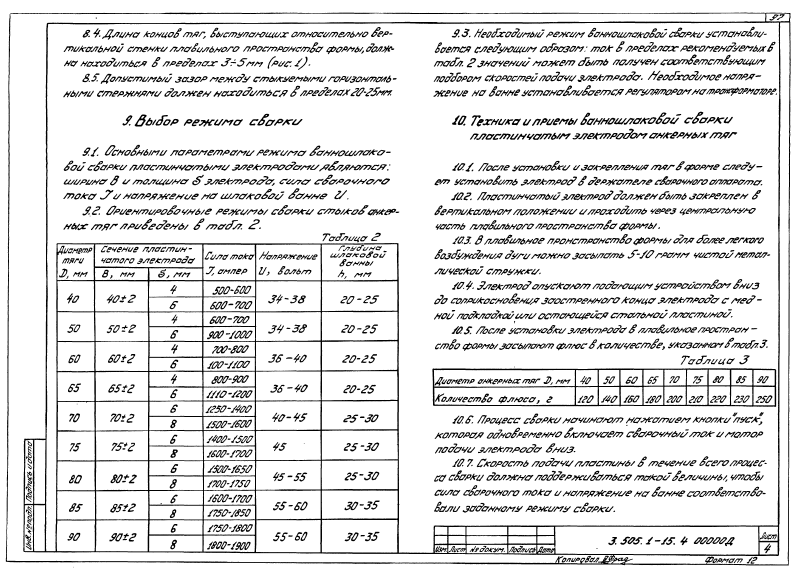 37
8.4. Длина концов тяг, выступающих относительно вер-
тикальной стенки плавильного пространства формы, долж-
на находиться в пределах 3÷5 мм (рис. 1).
8.5. Допустимый зазор между стыкуемыми горизонталь-
ными стержнями должен находиться в пределах 20-25мм.
9. Выбор режима сварки
9.1. Основными параметрами режима ванношлако-
вой сварки пластинчатыми электродами являются:
ширина В и толщина б электрода, сила сварочного
тока J и напряжение на шлаковой ванне U.
9.2. Ориентировочные режимы сварки стыков анкер-
ных тяг приведены в табл. 2.
Таблица 2
Диаметр тяги D, мм | Сечение пластин- чатого электрода B, мм | б, мм | Сила тока J, ампер | Напряжение U, вольт | Глубина шлаковой ванны h, мм
40 | 40±2 | 4 | 500-600 | 34-38 | 20-25
6 | 600-700
50 | 50±2 | 4 | 600-700 | 34-38 | 20-25
6 | 900-1000
60 | 60±2 | 4 | 700-800 | 36-40 | 20-25
6 | 100-1100
65 | 65±2 | 4 | 800-900 | 36-40 | 20-25
6 | 1110-1200
70 | 70±2 | 6 | 1250-1400 | 40-45 | 25-30
8 | 1500-1600
75 | 75±2 | 6 | 1400-1500 | 45 | 25-30
8 | 1600-1700
80 | 80±2 | 6 | 1500-1650 | 45-55 | 25-30
8 | 1700-1750
85 | 85±2 | 6 | 1600-1700 | 55-60 | 30-35
8 | 1750-1850
90 | 90±2 | 6 | 1750-1800 | 55-60 | 30-35
8 | 1800-1900
9.3. Необходимый режим ванношлаковой сварки устанавли-
вается следующим образом: ток в пределах рекомендуемых в
табл. 2 значений может быть получен соответствующим
подбором скоростей подачи электрода. Необходимое напря-
жение на ванне устанавливается регулятором на трансформаторе.
10. Техника и приемы ванношлаковой сварки
пластинчатым электродом анкерных тяг
10.1. После установки и закрепления тяг в форме следу-
ет установить электрод в держателе сварочного аппарата.
10.2. Пластинчатый электрод должен быть закреплен в
вертикальном положении и проходить через центральную
часть плавильного пространства формы.
10.3. В плавильное пространство формы для более легкого
возбуждения дуги можно засыпать 5-10 грамм чистой метал-
лической стружки.
10.4. Электрод опускают подающим устройством вниз
до соприкосновения заостренного конца электрода с мед-
ной подкладкой или остающейся стальной пластиной.
10.5. После установки электрода в плавильное простран-
ство формы засыпают флюс в количестве, указанном в табл 3.
Таблица 3
Диаметр анкерных тяг D, мм | 40 | 50 | 60 | 65 | 70 | 75 | 80 | 85 | 90
Количество флюса, г | 120 | 140 | 160 | 180 | 200 | 210 | 220 | 230 | 250
10.6. Процесс сварки начинают нажатием кнопки "пуск",
которая одновременно включает сварочный ток и мотор
подачи электрода вниз.
10.7. Скорость подачи пластины в течение всего процес-
са сварки должна поддерживаться такой величины, чтобы
сила сварочного тока и напряжение на ванне соответство-
вали заданному режиму сварки.
Инв. № подл. Подпись и дата
Изм. Лист № докум. Подпись Дата
3.505.1-15.4 00000Д
Лист
4
Копировал
Формат 12